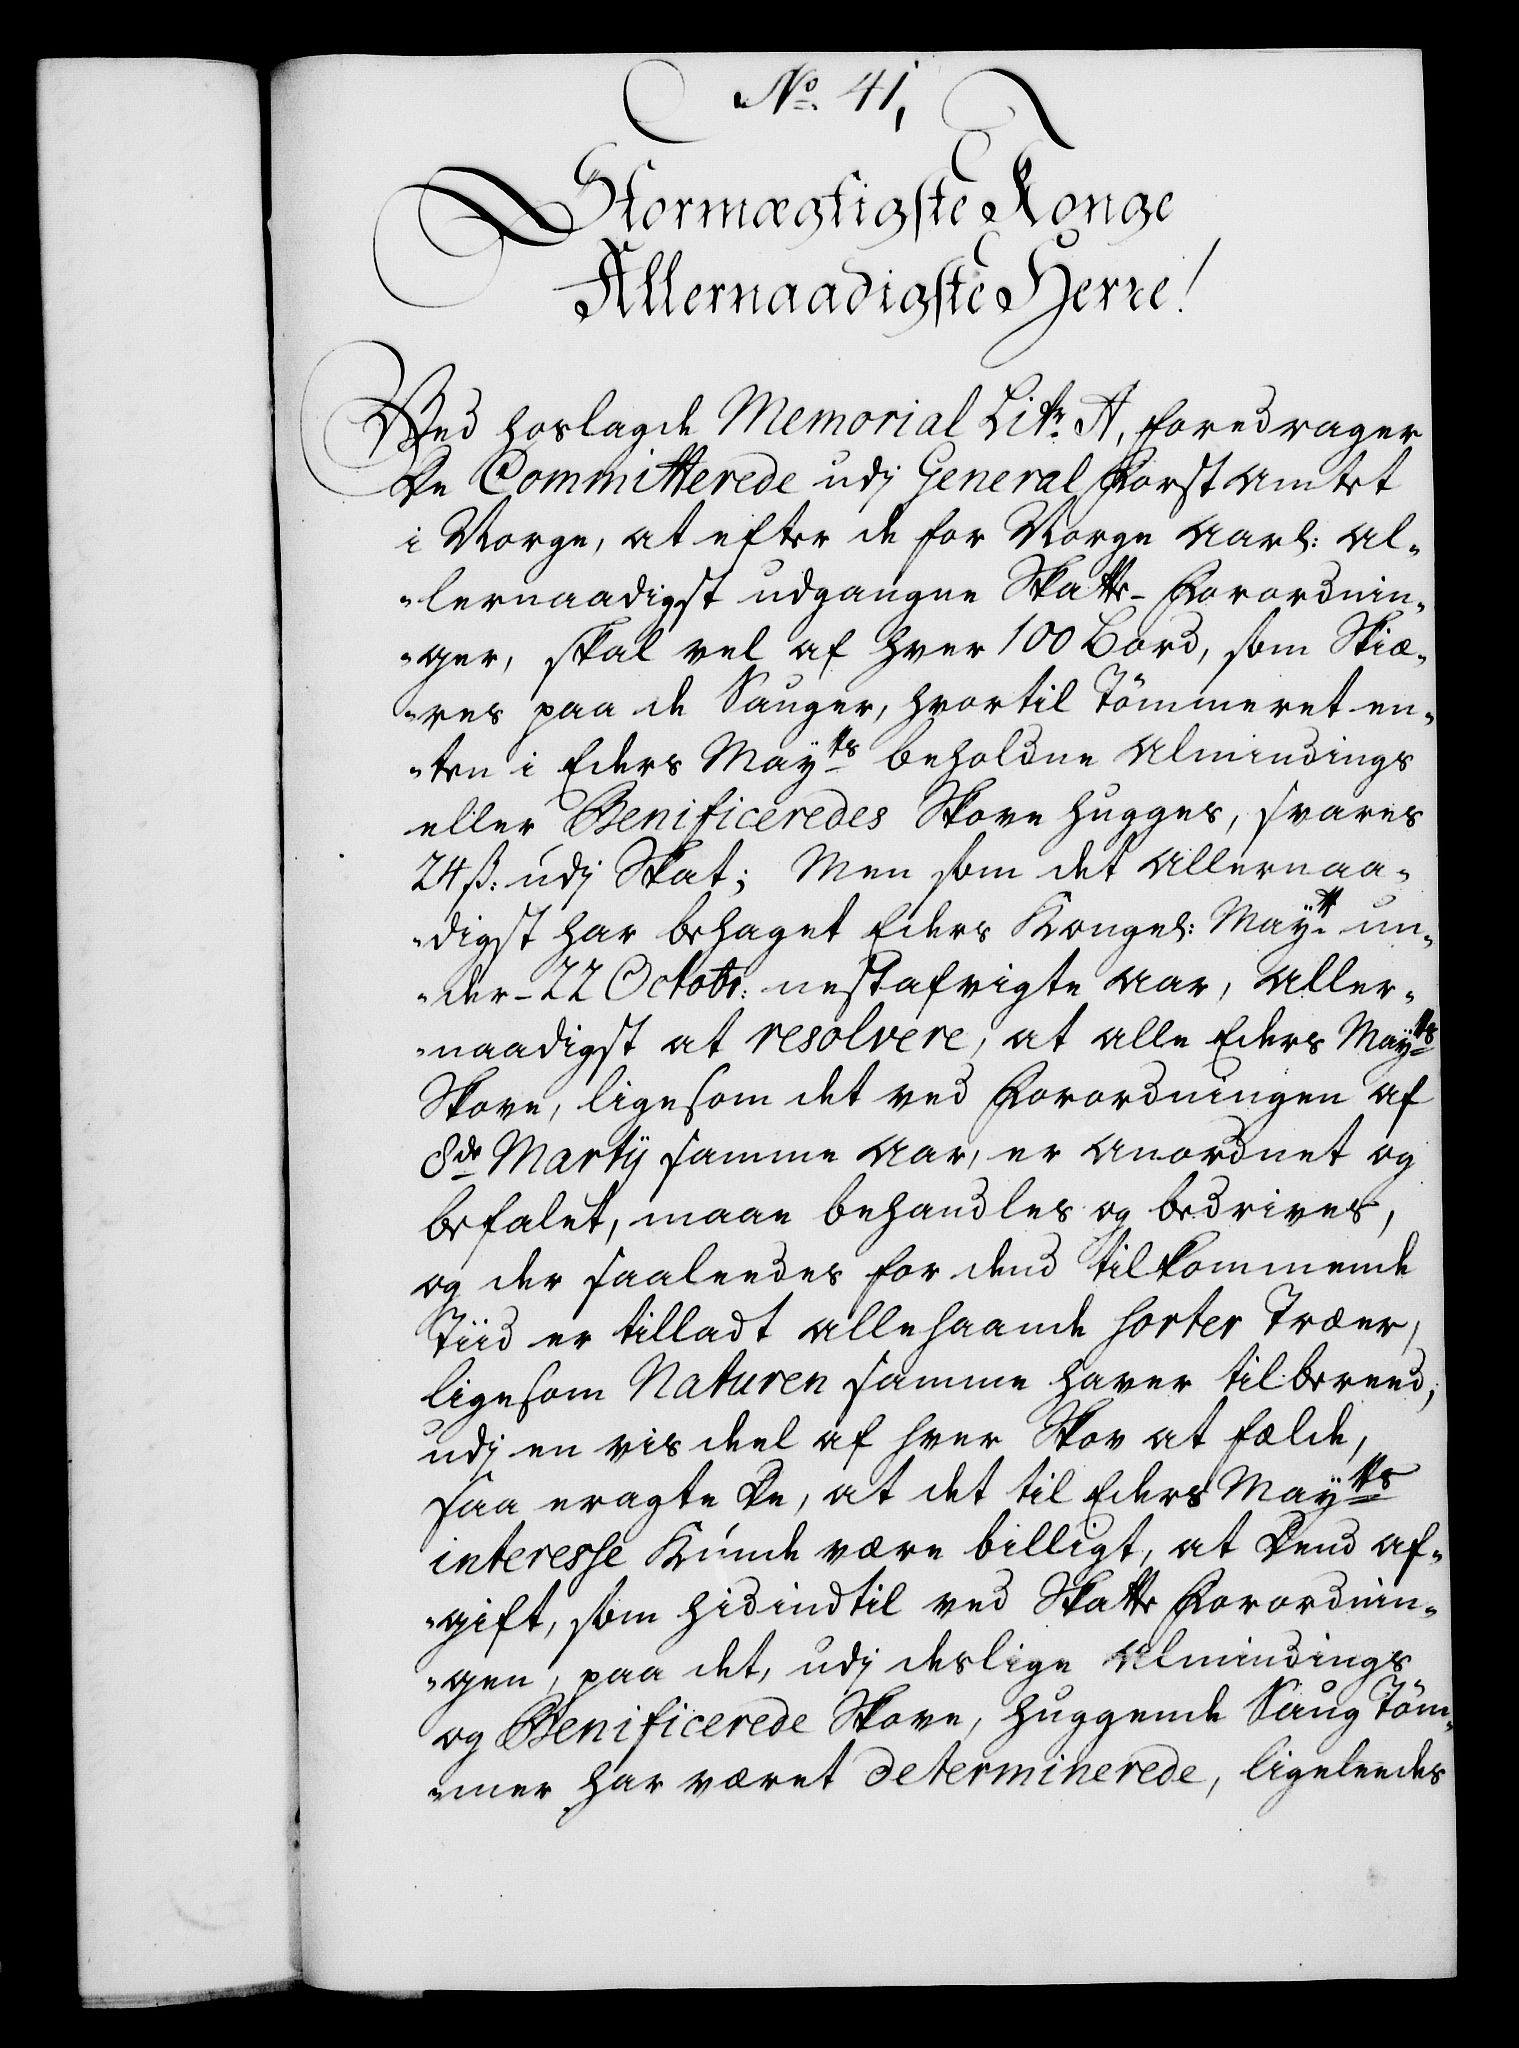 No. 41,
Stormægtigste Konge
Allernaadigste Herre!
Ved hoslagde Memorial Litr. A, foredrager
De Committerede udj General Forst Amtet
i Norge, at efter de for Norge aarl: al-
-lernaadigst udgangne Skatte-Forordnin-
-ger, skal vel af hver 100 Bord, som Skiæ-
-res paa de Sauger, hvortil Tømmeret en-
-ten i Eders Mayts beholdne Almindings
eller Benificeredes Skove hugges, svares
24 ß: udj Skat; Men som det Allernaa-
-digst har behaget Eders Kongel: Mayt. un-
-der 22 Octobr: nestafvigte Aar, Aller-
-naadigst at resolvere, at alle Eders Mayts
Skove, ligesom det ved Forordningen af
8de Martij samme Aar, er anordnet og
befalet, maae behandles og bedrives,
og der saaleedes for dend tilkommende
Tiid er tilladt allehaande sorter Træer,
ligesom Naturen samme haver tilbereed,
udj en vis deel af hver Skov at fælde,
saa eragte De, at det til Eders Mayts
interesse Kunde være billigt, at Dend af-
-gift, som hidindtil ved Skatte Forordnin-
-gen, paa det, udj deslige Almindings
og Benificerede Skove, huggende Saug Tøm-
-mer har været determinerede, ligeleedes